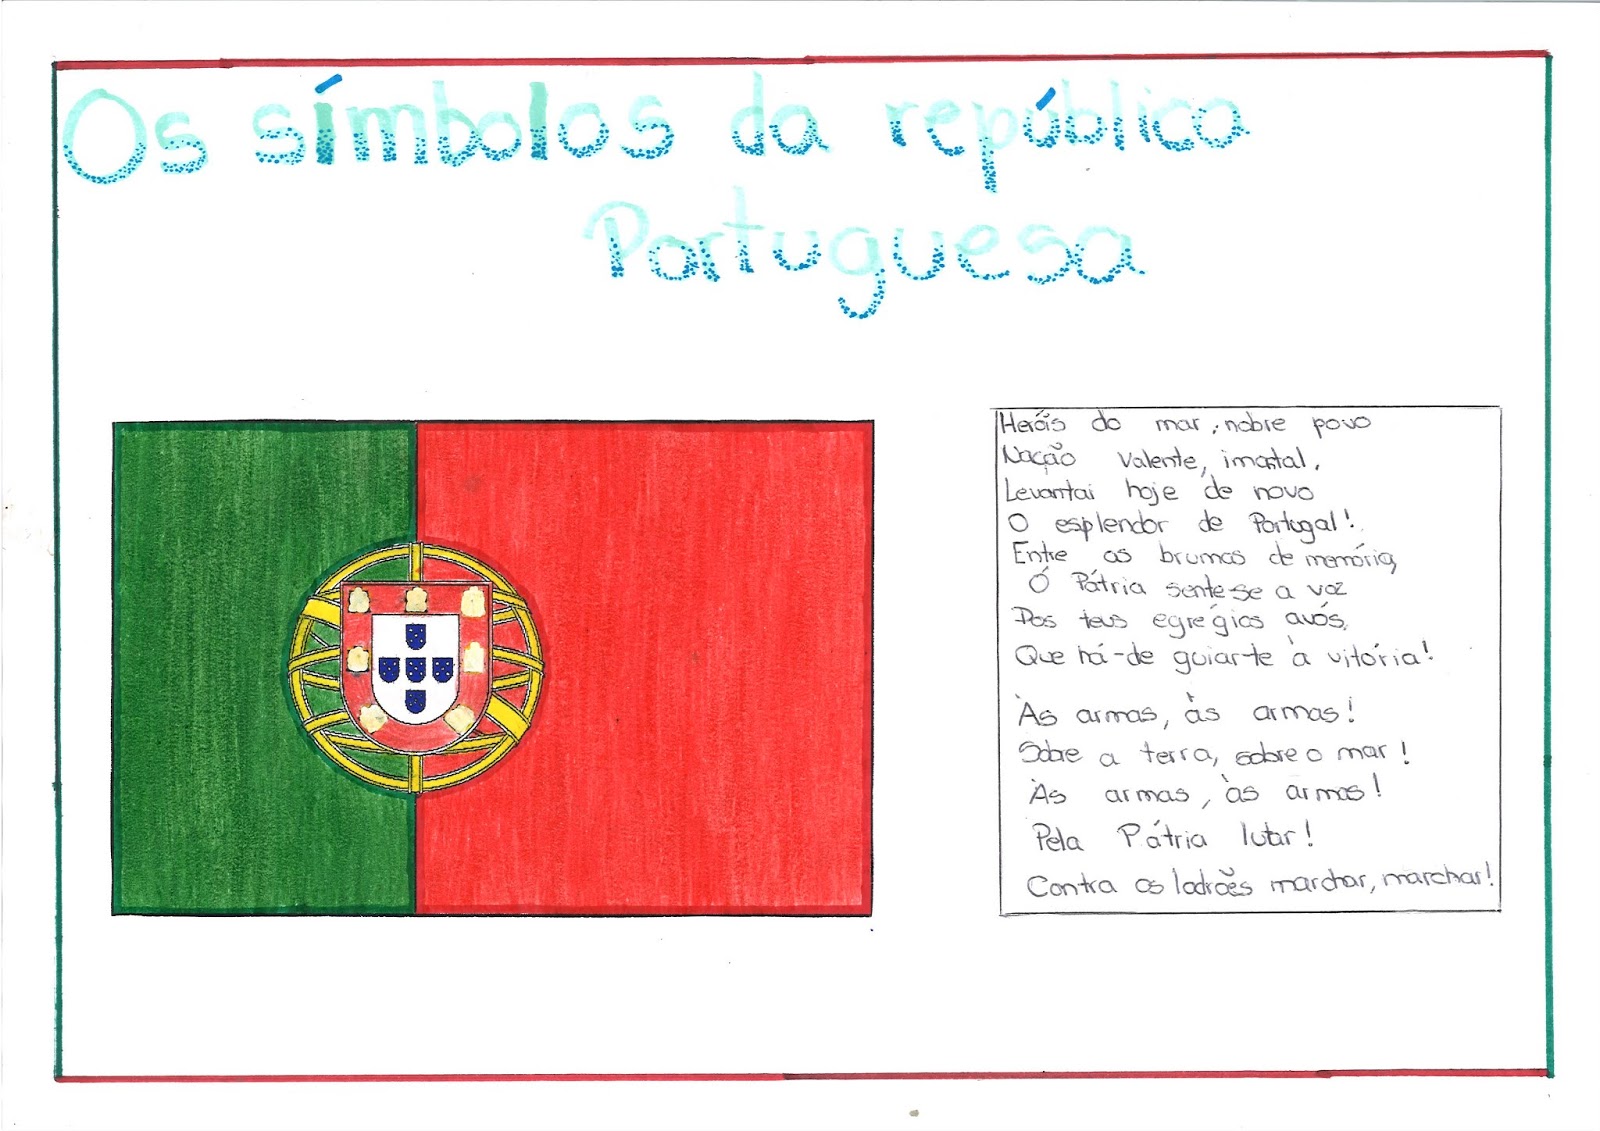 Os símbolos da república
Portuguesa
Heróis do mar, nobre povo
Nação valente, imortal,
Levantai hoje de novo
O esplendor de Portugal!
Entre as brumas de memória,
Ó Pátria sente-se a voz
Dos teus egrégios avós,
Que há-de guiar-te à vitória!
Às armas, às armas!
Sobre a terra, sobre o mar!
Às armas, às armas!
Pela Pátria lutar!
Contra os ladrões marchar, marchar!